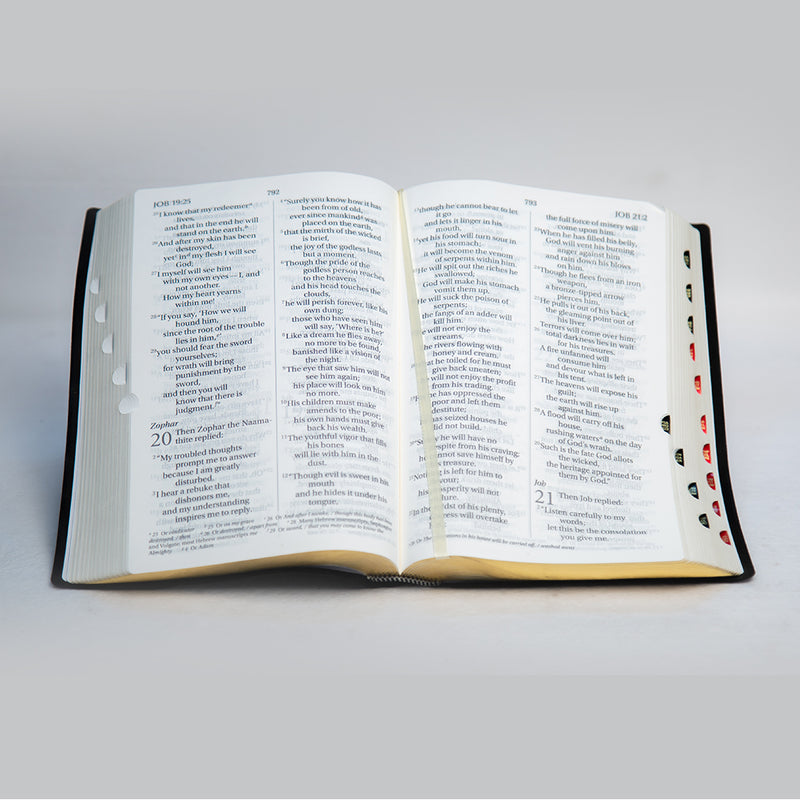 JOB 19:25
792
25 I know that my redeemer
lives,
and that in the end he will
stand on the earth.
26 And after my skin has been
destroyed,
yet in my flesh I will see
God;
27 I myself will see him
with my own eyes — I, and
not another.
How my heart yearns
within me!
28 "If you say, 'How we will
hound him,
since the root of the trouble
lies in him,'
29 you should fear the sword
yourselves;
for wrath will bring
punishment by the
sword,
and then you will
know that there is
judgment."
Zophar
20 Then Zophar the Naama-
thite replied:
2 "My troubled thoughts
prompt me to answer
because I am greatly
disturbed.
3 I hear a rebuke that
dishonors me,
and my understanding
inspires me to reply.
4 "Surely you know how it has
been from of old,
ever since mankind was
placed on the earth,
5 that the mirth of the wicked
is brief,
the joy of the godless lasts
but a moment.
6 Though the pride of the
godless person reaches
to the heavens
and his head touches the
clouds,
7 he will perish forever, like his
own dung;
those who have seen him
will say, 'Where is he?'
8 Like a dream he flies away,
no more to be found,
banished like a vision of
the night.
9 The eye that saw him will not
see him again;
his place will look on him
no more.
10 His children must make
amends to the poor;
his own hands must give
back his wealth.
11 The youthful vigor that fills
his bones
will lie with him in the
dust.
12 "Though evil is sweet in his
mouth
and he hides it under his
tongue,
793
13 though he cannot bear to let
it go
and lets it linger in his
mouth,
14 yet his food will turn sour in
his stomach;
it will become the venom
of serpents within him.
He will spit out the riches he
swallowed;
God will make his stomach
vomit them up.
He will suck the poison of
serpents;
the fangs of an adder will
kill him.
will not enjoy the
streams,
the rivers flowing with
honey and cream.
at he toiled for he must
give back uneaten;
will not enjoy the profit
from his trading.
he has oppressed the
poor and left them
destitute;
has seized houses he
did not build.
he will have no
respite from his craving;
he cannot save himself by
treasure.
is left for him to
prosperity will not
of his plenty,
distress will overtake
JOB 21:2
the full force of misery will
come upon him.
When he has filled his belly,
God will vent his burning
anger against him
and rain down his blows
on him.
Though he flees from an iron
weapon,
a bronze-tipped arrow
pierces him.
He pulls it out of his back,
the gleaming point out of
his liver.
Terrors will come over him;
total darkness lies in wait
for his treasures.
A fire unfanned will
consume him
and devour what is left in
his tent.
27 The heavens will expose his
guilt;
the earth will rise up
against him.
28 A flood will carry off his
house,
rushing waters on the day
of God's wrath.
29 Such is the fate God allots
the wicked,
the heritage appointed for
them by God."
Job
21 Then Job replied:
2 "Listen carefully to my
words;
let this be the consolation
you give me.